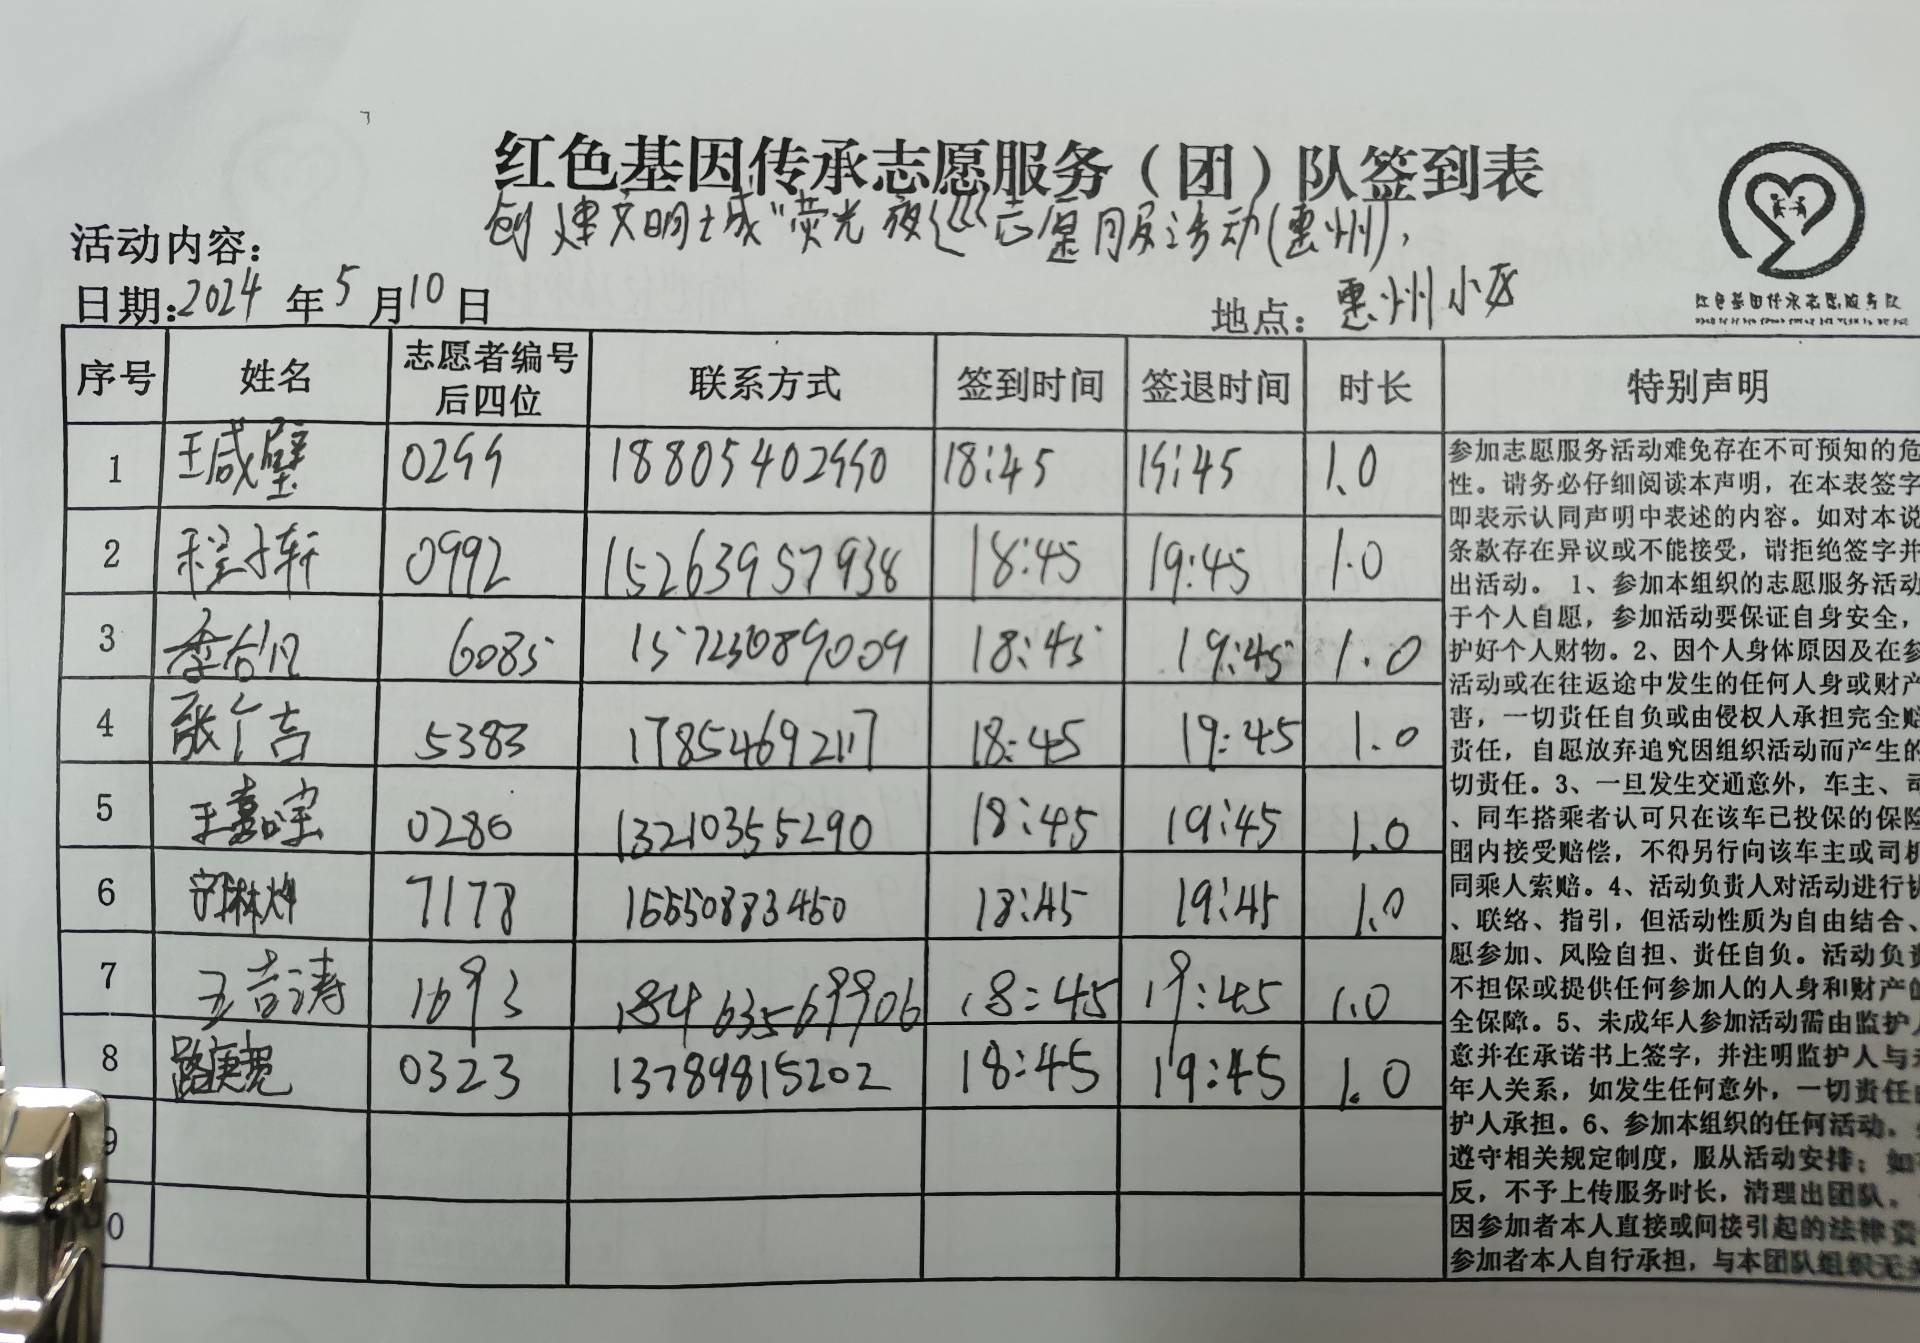 红色基因传承志愿服务（团）队签到表
活动内容：创建文明城"荧光夜巡志愿服务活动(惠州),
日期:2024年5月10日 地点：惠州小区
红色基因传承志愿服务队
序号 姓名 志愿者编号后四位 联系方式 签到时间 签退时间 时长 特别声明
1 王咸壁 0299 18805402990 18:45 19:45 1.0
2 程子轩 0992 15263957938 18:45 19:45 1.0
3 6085 18:45 19:45 1.0
4 张广吉 5383 17854692117 18:45 19:45 1.0
5 王嘉宝 0280 13210355290 18:45 19:45 1.0
6 7178 18:45 19:45 1.0
7 王吉涛 1693 18463569906 18:45 19:45 1.0
8 路庚 0323 13789815202 18:45 19:45 1.0
9
0
参加志愿服务活动难免存在不可预知的危
性。请务必仔细阅读本声明，在本表签字
即表示认同声明中表述的内容。如对本说
条款存在异议或不能接受，请拒绝签字并
出活动。1、参加本组织的志愿服务活动
于个人自愿，参加活动要保证自身安全，
护好个人财物。2、因个人身体原因及在参
活动或在往返途中发生的任何人身或财产
害，一切责任自负或由侵权人承担完全赔
责任，自愿放弃追究因组织活动而产生的
切责任。3、一旦发生交通意外，车主、司
、同车搭乘者认可只在该车已投保的保险
围内接受赔偿，不得另行向该车主或司机
同乘人索赔。4、活动负责人对活动进行协
、联络、指引，但活动性质为自由结合、
愿参加、风险自担、责任自负。活动负责
不担保或提供任何参加人的人身和财产的
全保障。5、未成年人参加活动需由监护人
意并在承诺书上签字，并注明监护人与未
年人关系，如发生任何意外，一切责任由
护人承担。6、参加本组织的任何活动，
遵守相关规定制度，服从活动安排；如
反，不予上传服务时长，清理出团队。
因参加者本人直接或间接引起的法律责
参加者本人自行承担，与本团队组织无关